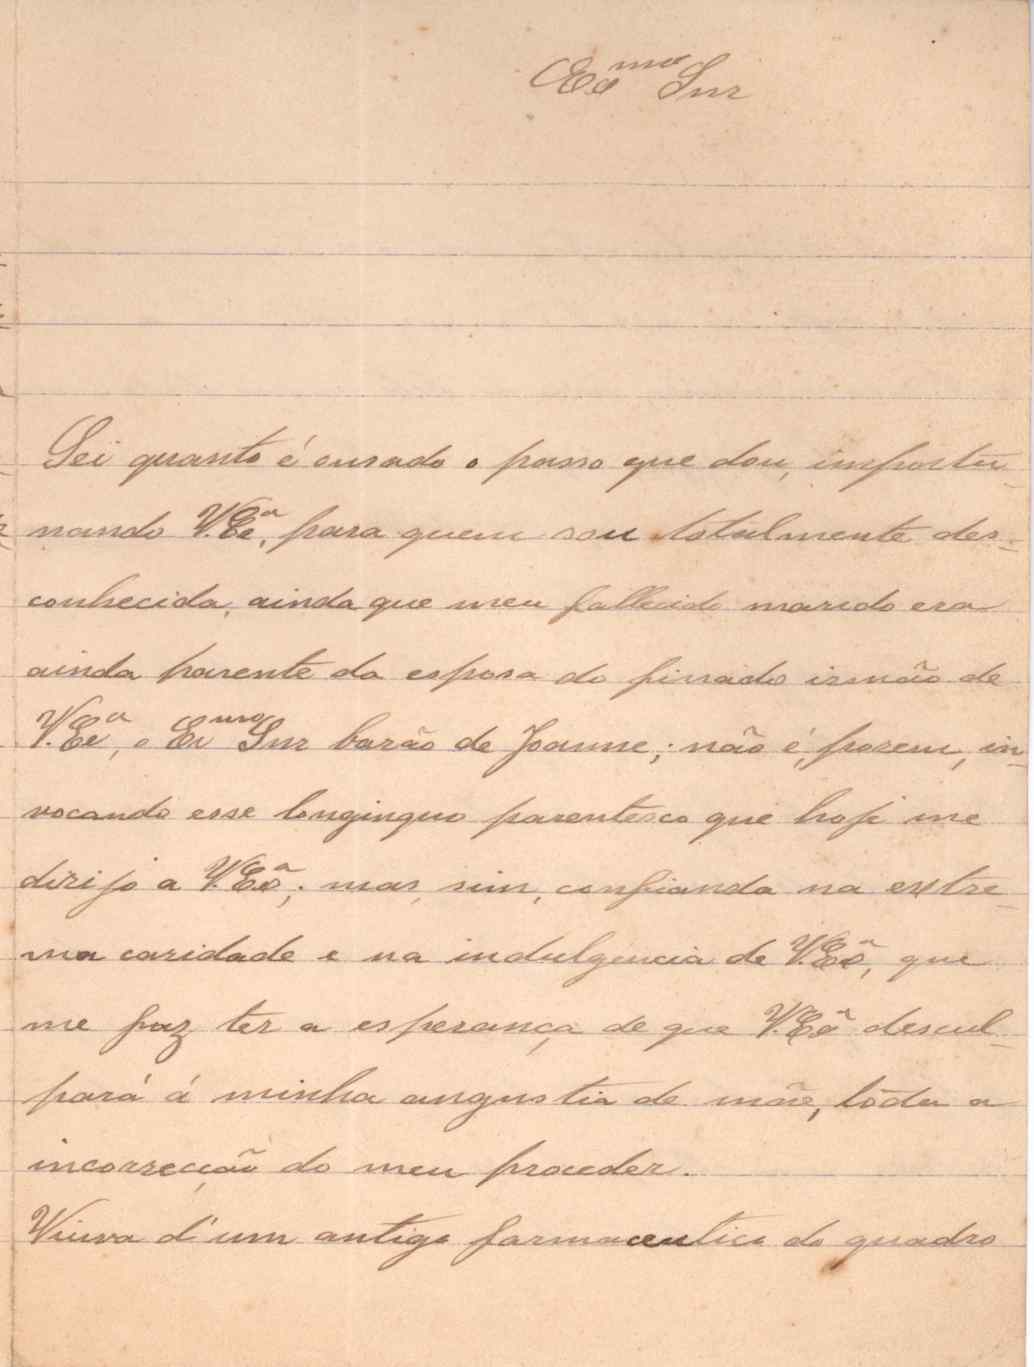 Exmo Snr
Sei quanto é ousado o passo que dou, importu-
nando V. Exª, para quem sou totalmente des-
conhecida, ainda que meu fallecido marido era
ainda parente da esposa do finado irmão de
V. Exª, o Exmo Snr barão de Joanne; não é, porem, in-
vocando esse longinquo parentesco que hoje me
dirijo a V. Exª; mas, sim, confianda na extre-
ma caridade e na indulgencia de V. Exª, que
me faz ter a esperança de que V. Exª descul-
pará á minha angustia de mãe, tôda a
incorrecção do meu proceder.
Viuva d'um antigo farmaceutico do quadro